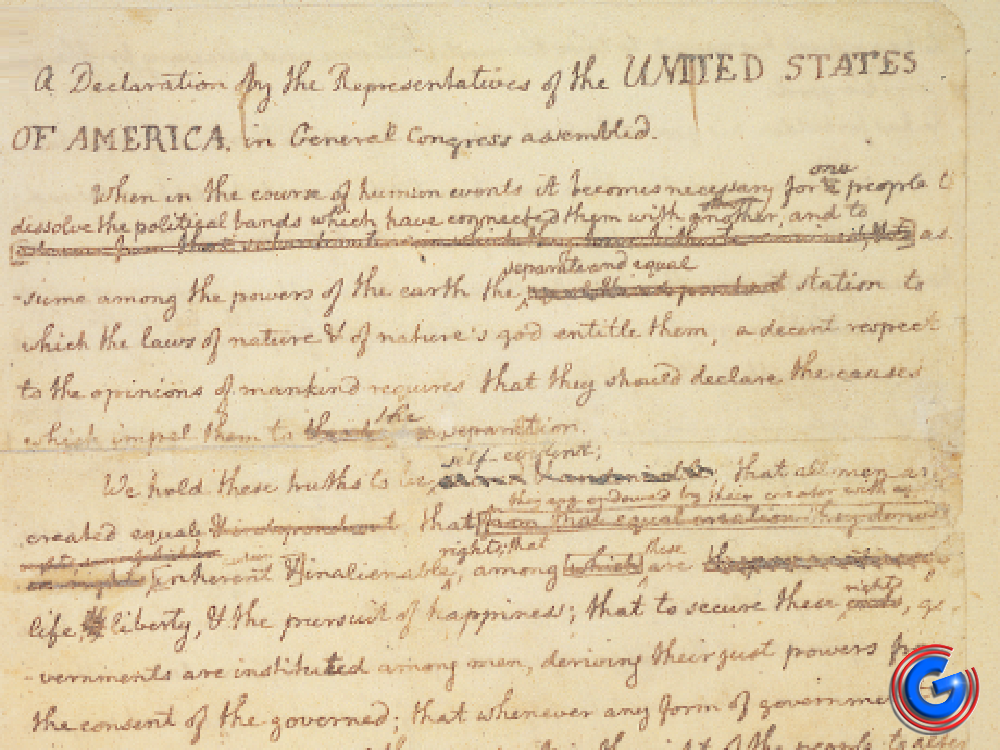 A Declaration by the Representatives of the UNITED STATES
OF AMERICA, in General Congress assembled.
When in the course of human events it becomes necessary for one people to
dissolve the political bands which have connected them with another, and to
as
separate and equal
-sume among the powers of the earth the station to
which the laws of nature & of nature's god entitle them, a decent respect
to the opinions of mankind requires that they should declare the causes
which impel them to the separation.
self-evident;
We hold these truths to be that all men are
they are endowed by their creator with
created equal & independent that from that equal creation they derive
rights; that
these
inherent & inalienable, among which are
rights
life, liberty, & the pursuit of happiness; that to secure these, go-
-vernments are instituted among men, deriving their just powers from
the consent of the governed; that whenever any form of government
G